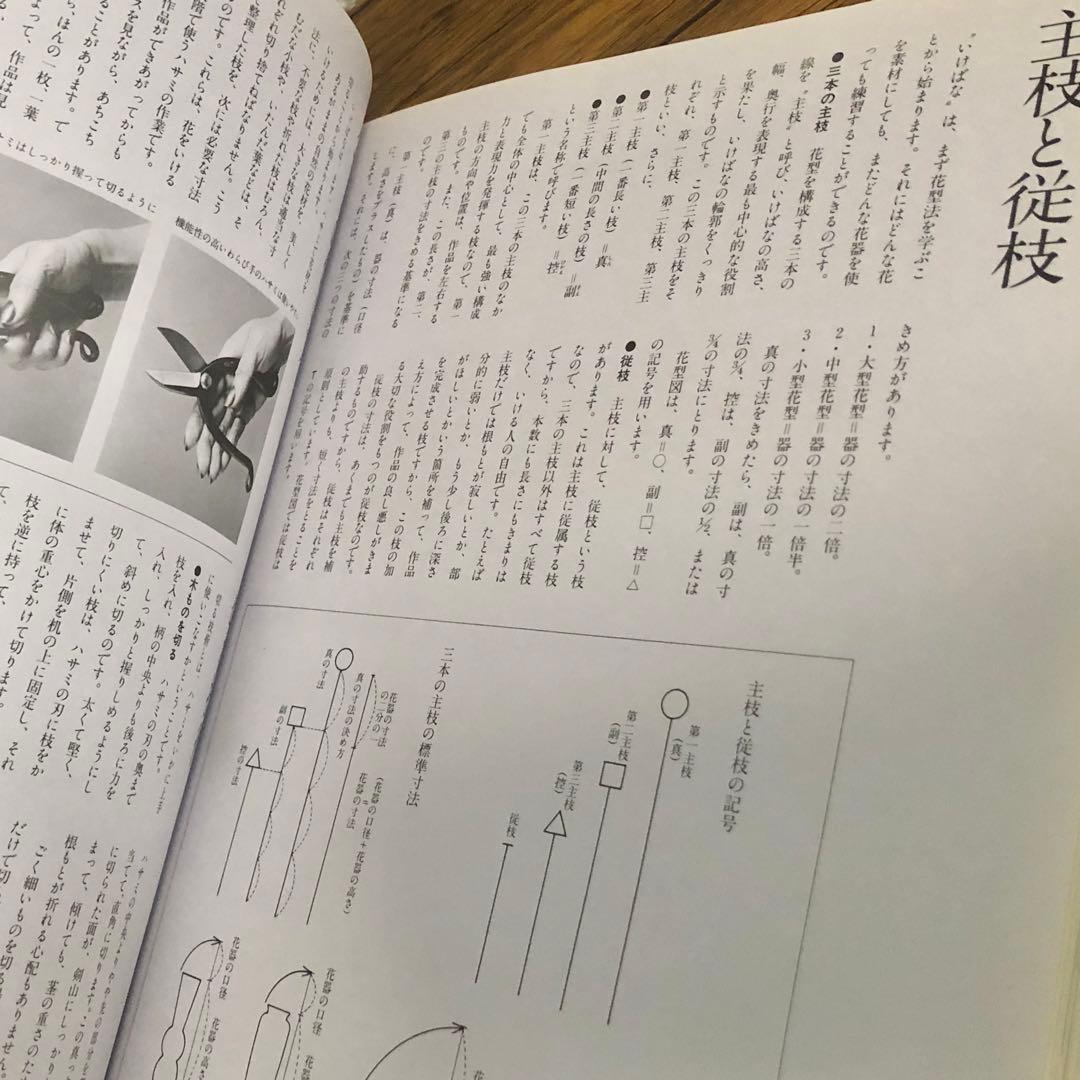 主枝と従枝
"いけばな"は、まず花型法を学ぶこ
とから始まります。それにはどんな花
を素材にしても、またどんな花器を使
っても練習することができるのです。
●三本の主枝　花型を構成する三本の
線を"主枝"と呼び、いけばなの高さ、
幅、奥行を表現する最も中心的な役割
を果たし、いけばなの輪郭をくっきり
と示すものです。この三本の主枝をそ
れぞれ、第一主枝、第二主枝、第三主
枝といい、さらに、
●第一主枝（一番長い枝）＝真
●第二主枝（中間の長さの枝）＝副
●第三主枝（一番短い枝）＝控
という名称で呼びます。
第一主枝は、この三本の主枝のなか
でも全体の中心として、最も強い構成
力と表現力を発揮する枝なので、第一
主枝の方向や位置は、作品を左右する
ものです。また、この長さが、第二、
第三の主枝の寸法をきめる基準になる
のです。
第一主枝（真）は、器の寸法（口径
に、高さをプラスしたもの）を基準に
します。それには、次の三つの寸法の
きめ方があります。
1・大型花型＝器の寸法の二倍。
2・中型花型＝器の寸法の一倍半。
3・小型花型＝器の寸法の一倍。
真の寸法をきめたら、副は、真の寸
法の¾、控は、副の寸法の½、または
¾の寸法にとります。
花型図は、真＝○、副＝□、控＝△
の記号を用います。
●従枝　主枝に対して、従枝という枝
があります。これは主枝に従属する枝
なので、三本の主枝以外はすべて従枝
ですから、本数にも長さにもきまりは
なく、いける人の自由です。たとえば
主枝だけでは根もとが寂しいとか、部
分的に弱いとか、もう少し後ろに深さ
がほしいとかいう箇所を補って、作品
を完成させる枝ですから、この枝の加
え方によって、作品の良し悪しがきま
る大切な役割をもつのが従枝なのです。
従枝の寸法は、あくまでも主枝を補
助するものですから、従枝はそれぞれ
の主枝よりも、短く寸法をとることを
原則としています。花型図では従枝は
Tの記号を用います。
主枝と従枝の記号
第一主枝
（真）
第二主枝
（副）
第三主枝
（控）
従枝
三本の主枝の標準寸法
花器の寸法
の二分の一
真の寸法の決め方
真の寸法
副の寸法
控の寸法
（花器の口径＋花器の高さ）
＝
花器の寸法
花器の口径
花器の高さ
花器の口径
花器
機能性の高いわらび手のハサミは使いやす
ミはしっかり握って切るように
むだな小枝や、いたんだ葉などは、そ
れぞれ切り捨てねばなりません。こう
整理した枝を、次には必要な寸法
のです。これらは、花をいける
階で使うハサミの作業です。
作品ができあがってからも
スを見ながら、あちこち
ることがあります。て
ら、ほんの一枚、一葉
よって、作品は見
に使いこなすかということです。
●木ものを切る
枝を入れ、ハサミの刃の奥まで
入れ、柄の中央よりも後ろに力を
て、しっかりと握りしめるようにし
て、斜めに切るのです。太くて堅く、
切りにくい枝は、ハサミの刃に枝をか
ませて、片側を机の上に固定し、それ
に体の重心をかけて切ります。
枝を逆に持って、
当てて、直角に切ります。この真っ
に切られた面が、剣山にしっかり
まって、傾けても、茎の重さのため
根もとが折れる心配もありません。
ごく細いものを切る
だけで切